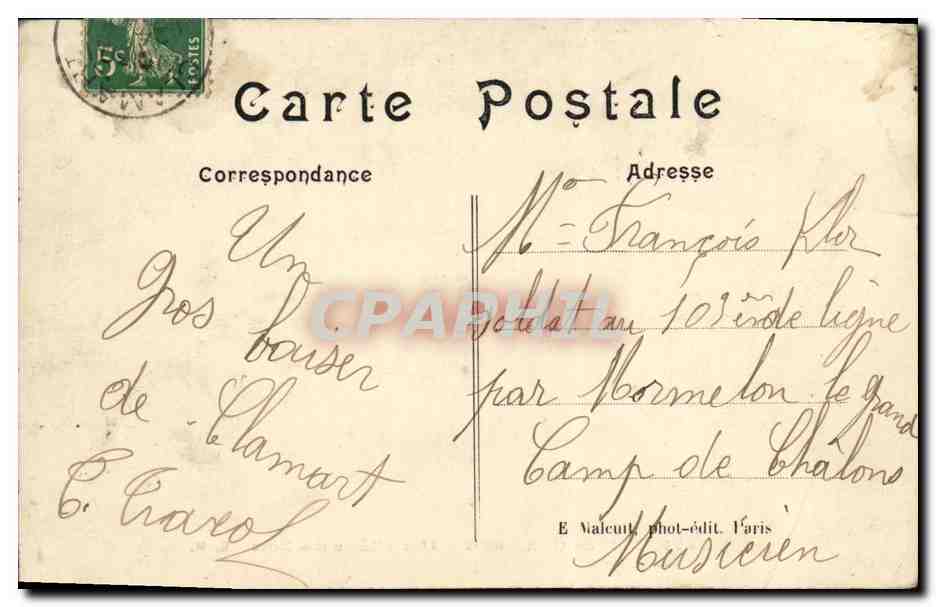 5c
POSTES
Carte Postale
Correspondance
Adresse
Un
gros baiser
de Clamart
Mr François
soldat au 103 de ligne
par Mormelon le grand
Camp de Châlons
Musicien
E Malcuit, phot-édit. Paris
CPAPHIL